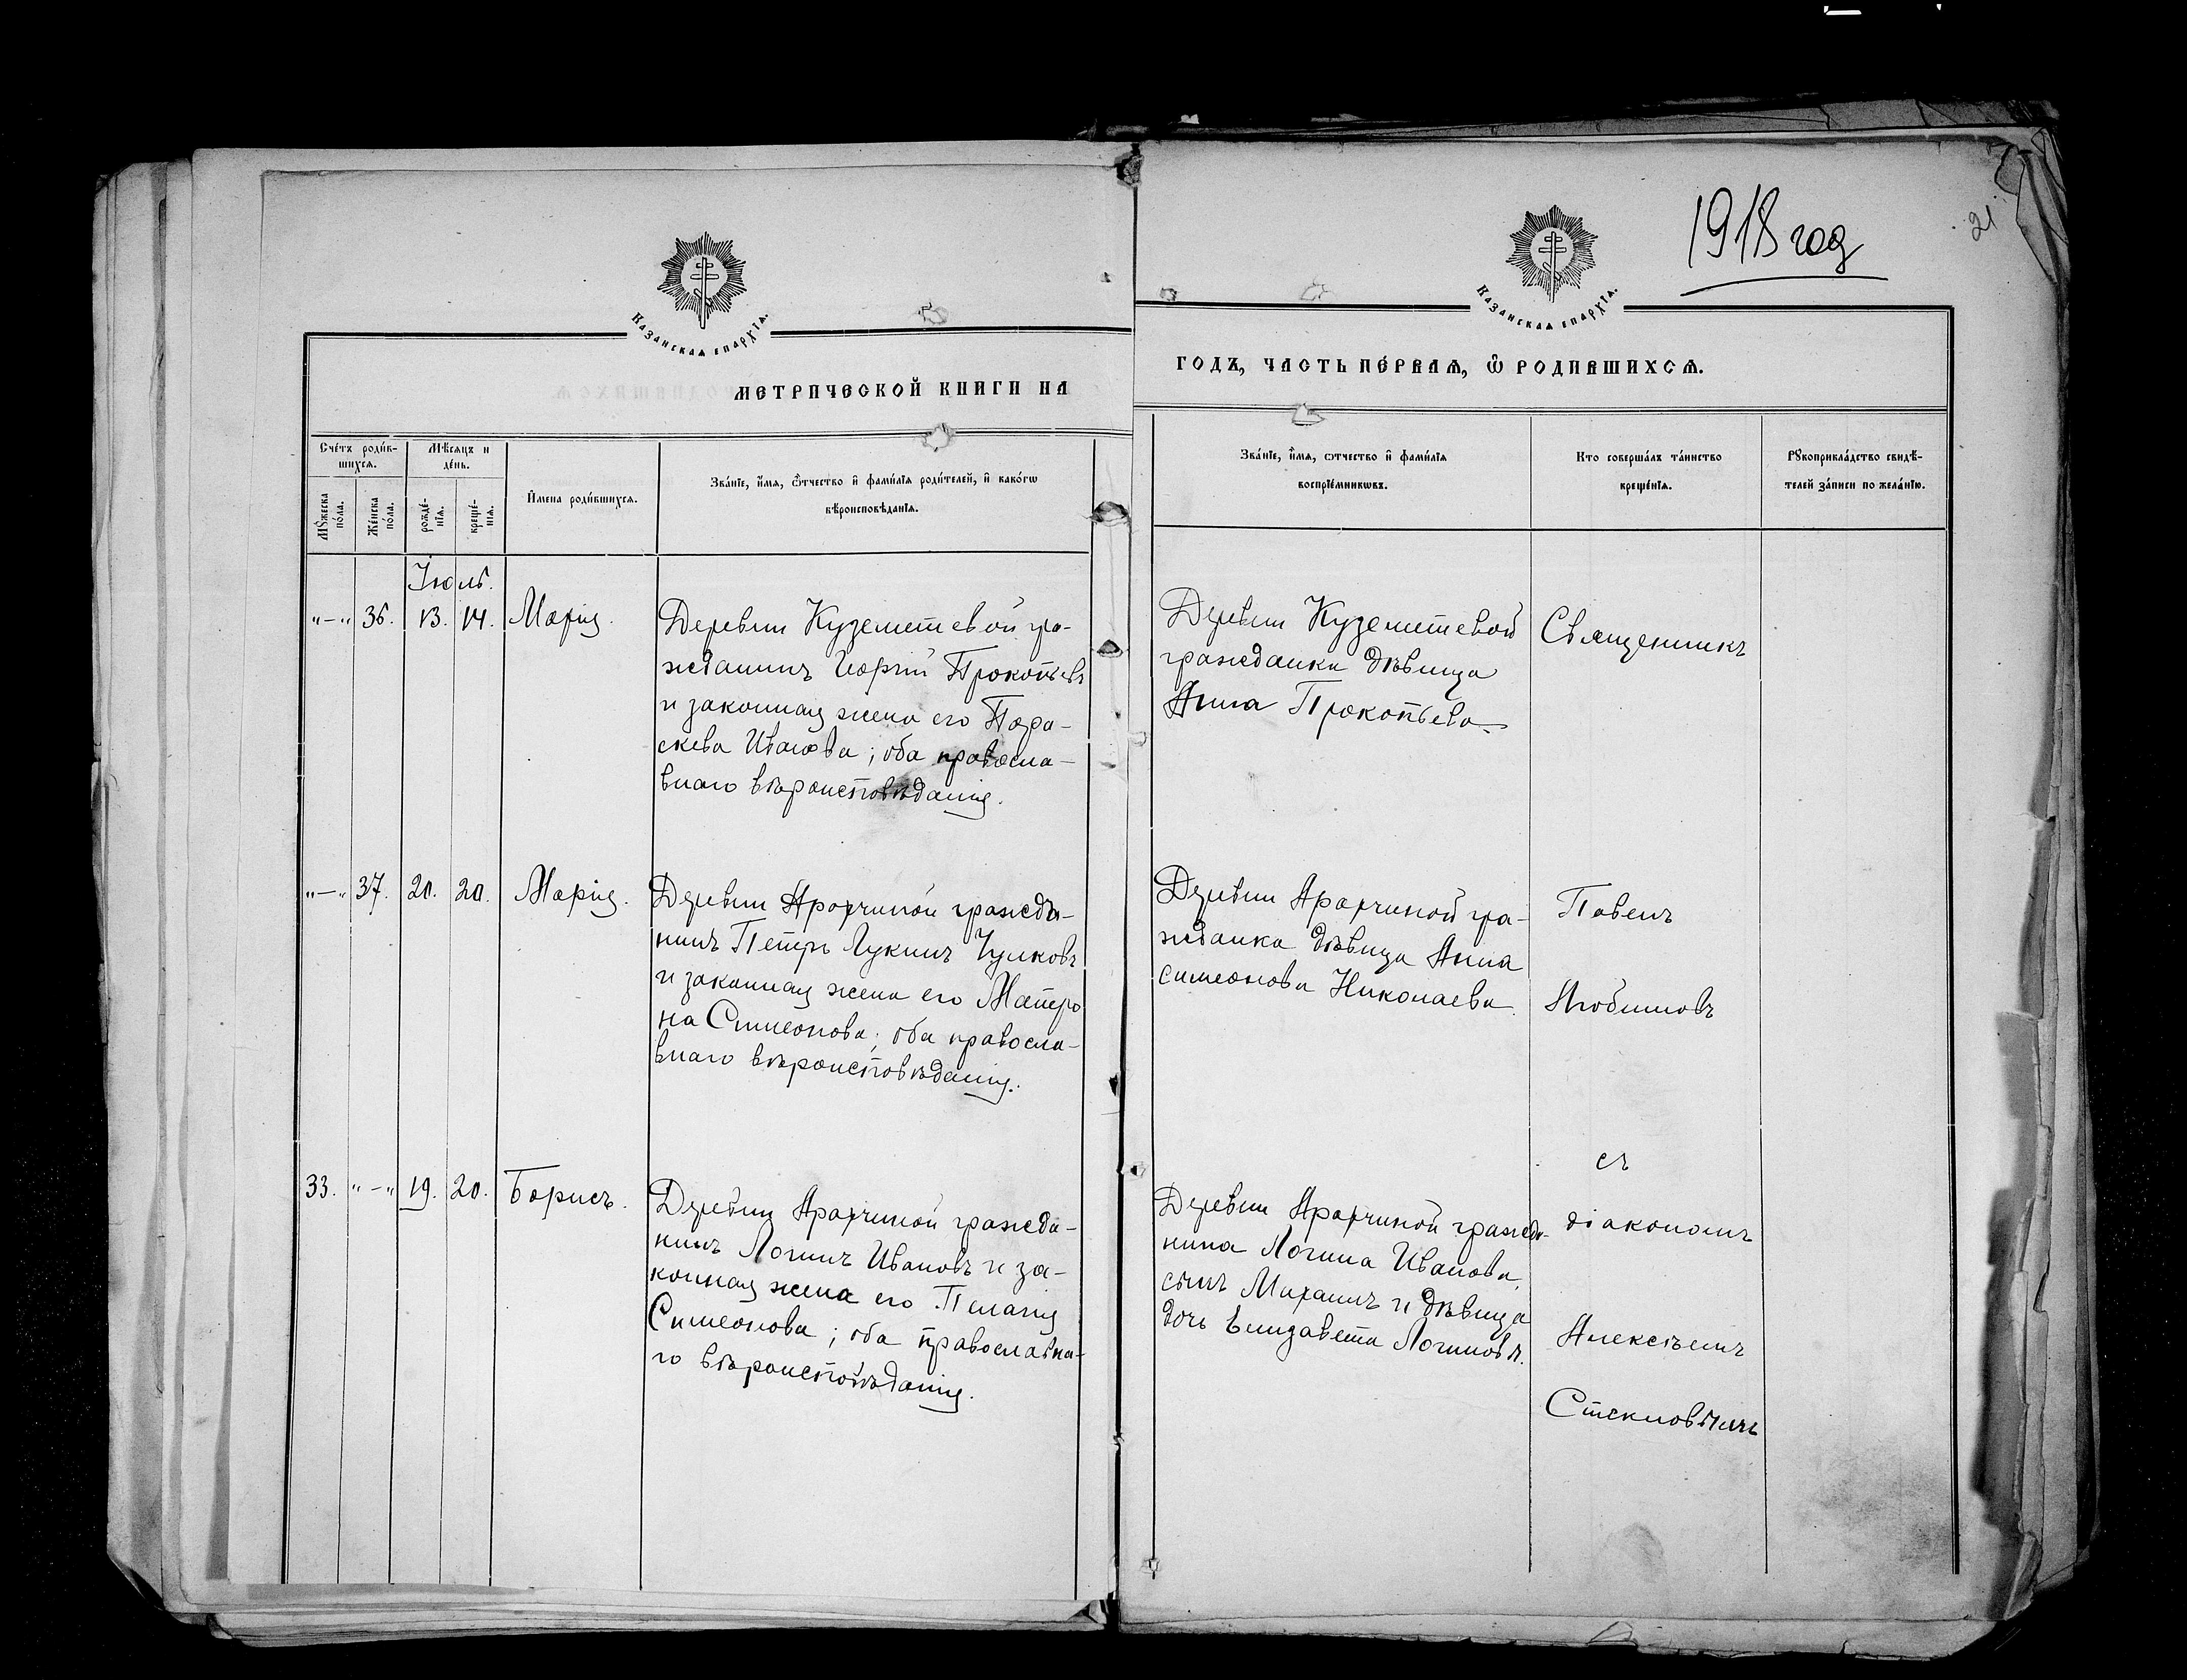 1918 год
21
Казанская епархїѧ.
Казанская епархїѧ.
МЕТРИЧЕСКОЙ КНИГИ НА
ГОДЪ, ЧАСТЬ ПЕ́РВАѦ, Ѽ РОДИВШИХСѦ.
Сче́тъ роди́в-
шихсѧ.
Мѣ́сѧцъ и
де́нь.
Мꙋжеска
по́ла.
Же́нска
по́ла.
рожде́-
нїѧ.
креще́-
нїѧ.
И҆мена роди́вшихсѧ.
Зва́нїе, и҆́мѧ, ѻ҆́тчество и҆ фами́лїѧ роди́телей, и҆ како́гѡ
вѣроисповѣ́данїѧ.
Зва́нїе, и҆́мѧ, ѻ҆́тчество и҆ фами́лїѧ
воспрїе́мникѡвъ.
Кто соверша́лъ та́инство
креще́нїѧ.
Рꙋкоприкла́дство свидѣ́-
телей за́писи по жела́нїю.
Іюль.
"—" 36. 13. 14. Марія.
Деревни Куземетевой гра-
жданинъ Георгій Прокопьевъ
и законная жена его Пара-
скева Иванова; оба правосла-
внаго вѣроисповѣданія.
Деревни Куземетевой
гражданка дѣвица
Анна Прокопьева
Священникъ
"—" 37. 20. 20. Марія.
Деревни Арахчиной гражда-
нинъ Петръ Лукинъ Чулковъ
и законная жена его Матро
на Симеонова; оба правосла-
внаго вѣроисповѣданія.
Деревни Арахчиной гра-
жданка дѣвица Анна
Симеонова Николаева.
Павелъ
Любимовъ
33. "—" 19. 20. Борисъ.
Деревни Арахчиной гражда-
нинъ Логинъ Ивановъ и за-
конная жена его Пелагія
Симеонова; оба православна-
го вѣроисповѣданія.
Деревни Арахчиной гражда-
нина Логина Иванова
сынъ Михаилъ и дѣвица
дочь Елизавета Логиновы.
съ
діакономъ
Алексѣемъ
Стекловымъ